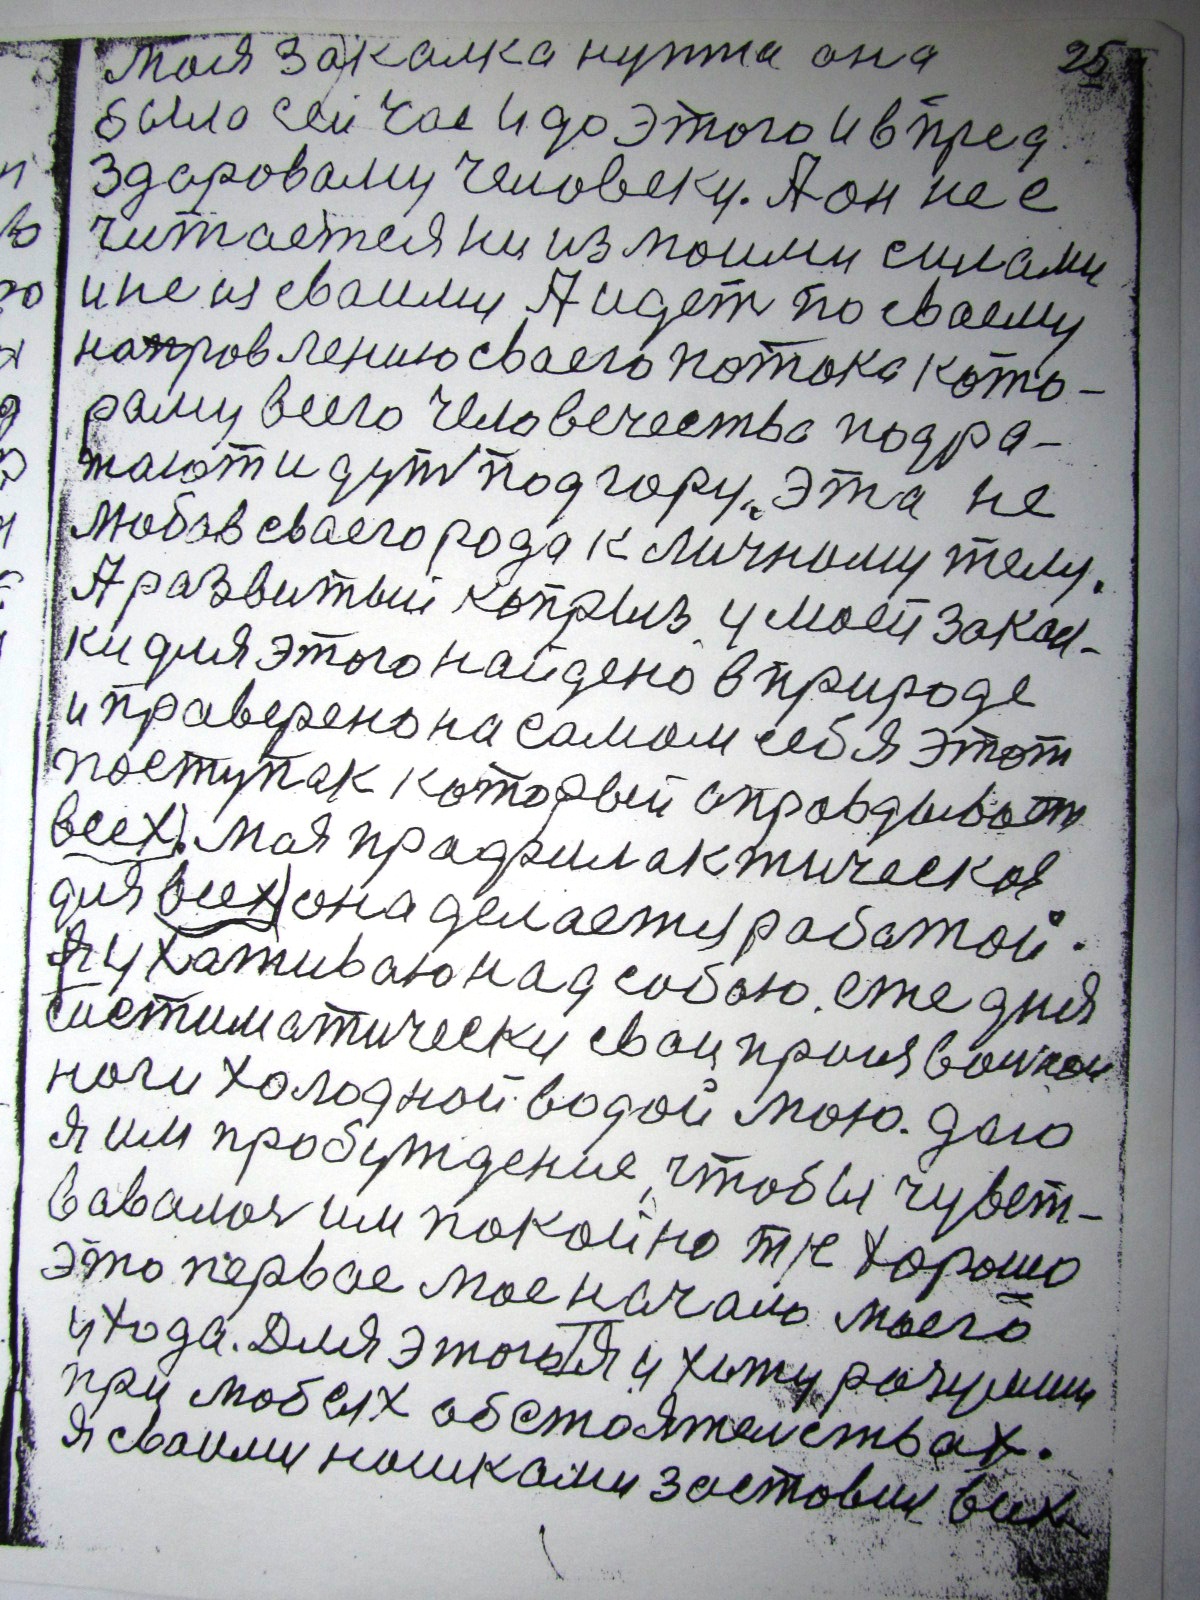 Моя закалка нужна она 25
была сей час и до этого и в пред
здароваму человеку. А он не с
читается ни из моими силами
и не из сваими А идет по сваему
напровлению сваего потока кото-
раму всего человечества подра-
жают идут под гору. Эта не
любов сваего рода к личному телу.
А развитый каприз у моей закал-
ки для этого найдено в природе
и праверено на самом себя этот
поступак который оправдывает
всех). Мая прафилактическая
для всех) она делается работой.
Я ухаживаю над собою. еже дня
систиматически сваи
ноги холодной водой мою. даю
я им пробуждение, чтобы чувст-
вавалось им покойно т/е хорошо
это первае мое начало моего
ухода. Для этого Я ухижу
при любых обстоятельствах.
я сваими ношками заставил всех